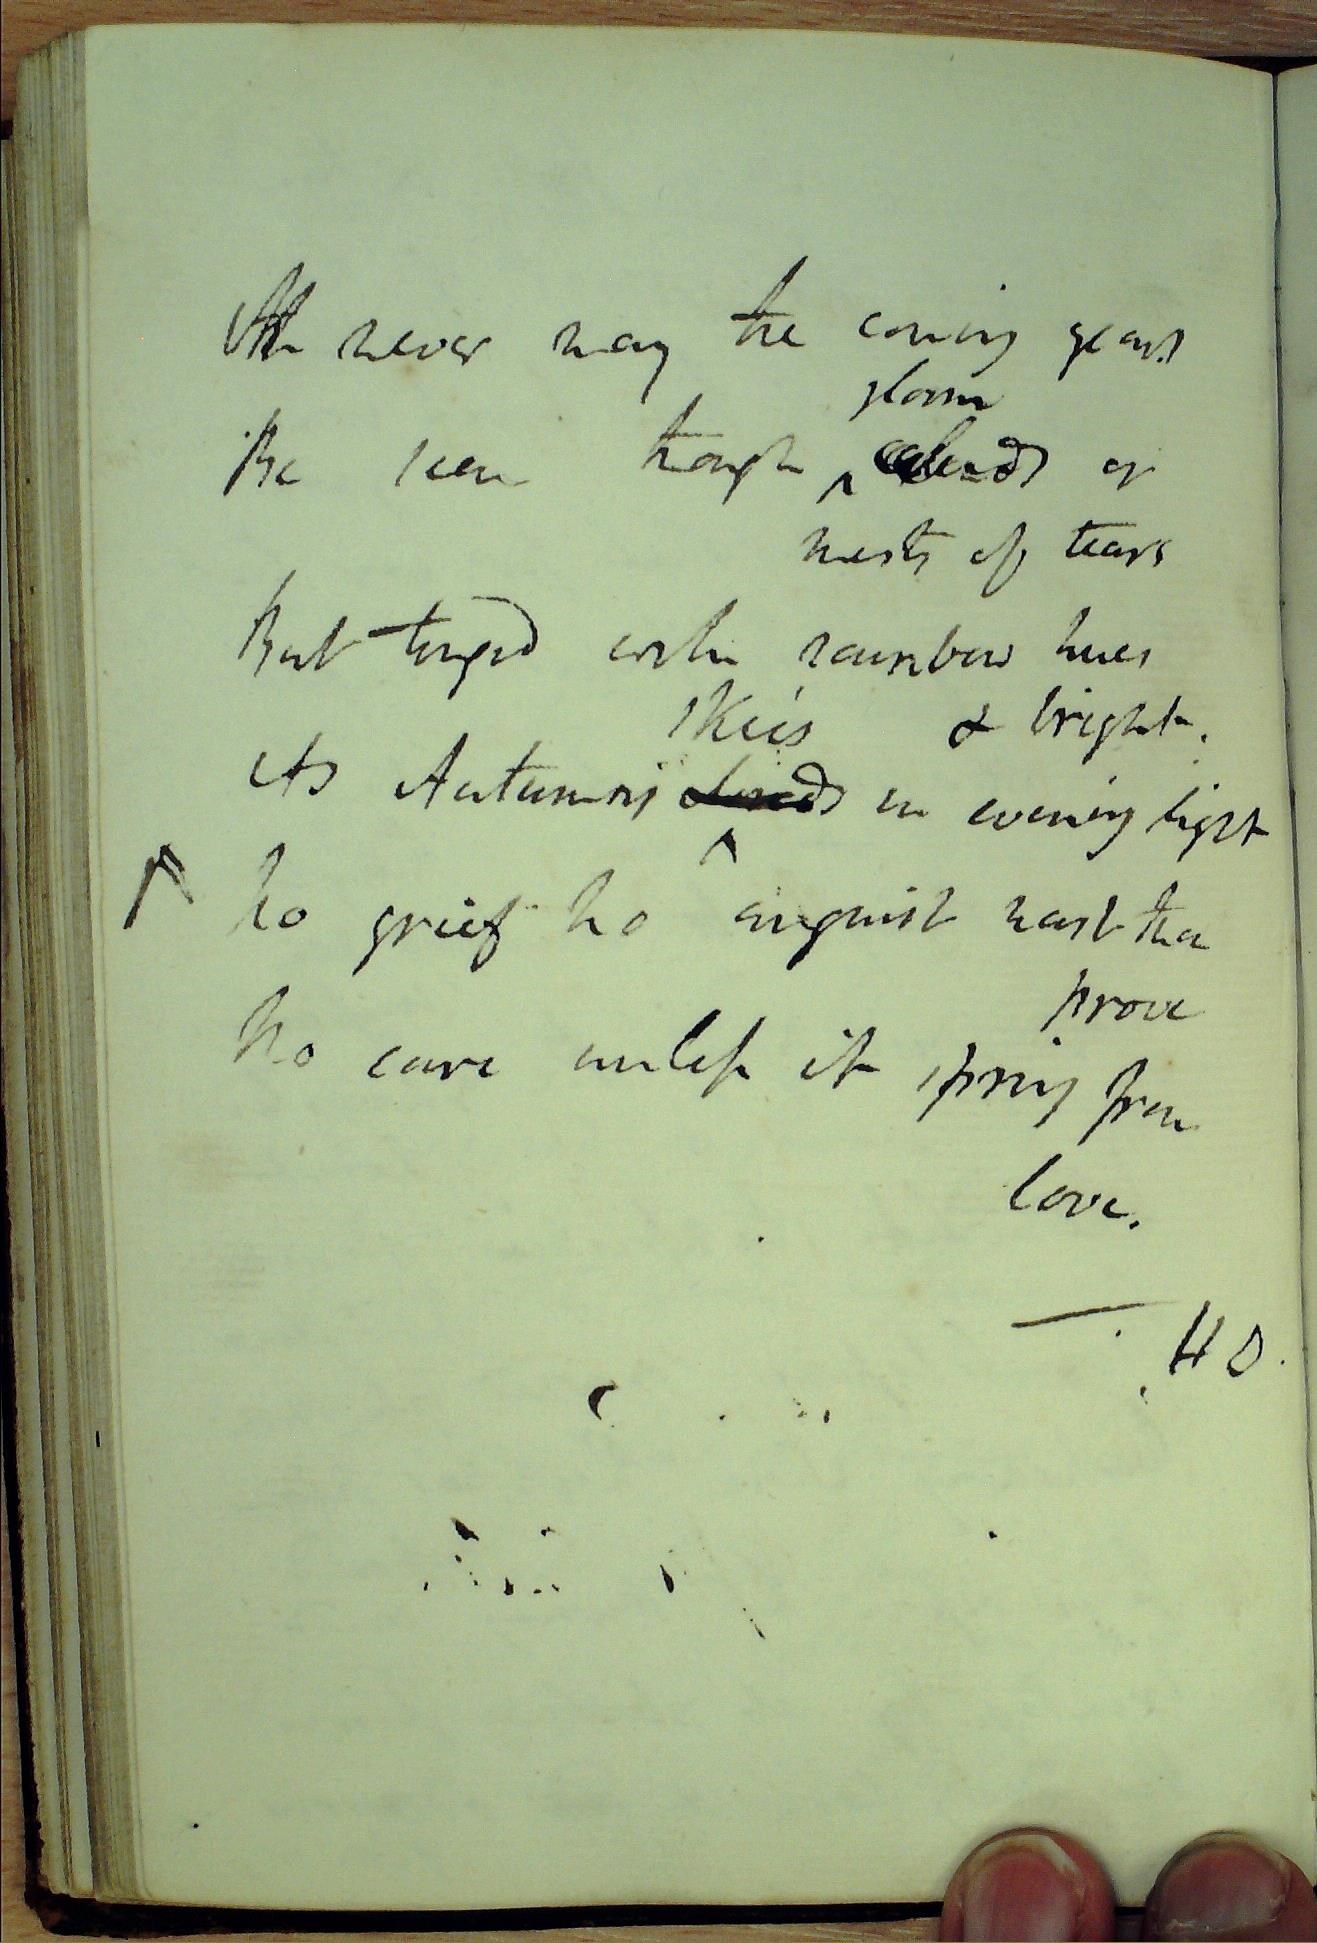 Ah never may the coming years
gloom
Be seen through clouds or
mists of tears
But tinged with rainbow hues
skies & bright.
As Autumns clouds in evening light
No grief no anguish mayst thou
prove
No care unless it spring from
love.
HD.